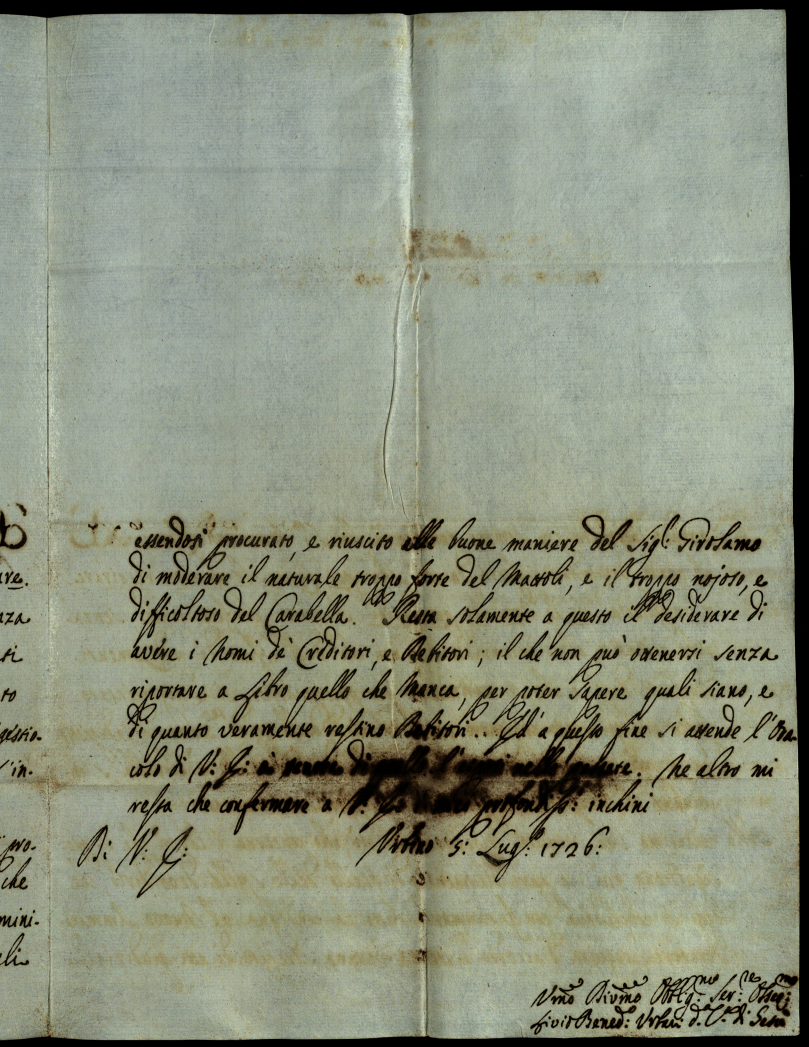 essendosi procurato, e riuscito alle buone maniere del Sigʳ: Girolamo
di moderare il naturale troppo forte del Mattoli, e il troppo nojoso, e
difficoltoso del Carabella. Resta solamente a questo il desiderare di
avére i Nomi dè Créditori, e Debitori; il che non può ottenersi senza
riportare a Libro quello che manca, per poter sapere quali siano, e
di quanto veramente restino Debitori. Ed a questo fine si attende l'Ora-
colo di V: S: nè altro mi
resta che confermare a V: profondiss: inchini
Di V: S: Urbino 5: Lugº: 1726:
Umo Divmo Oblgmo Ser:re Osseq:mo
Livio Bened:
are.
nza
ti
to
gestio-
l'in-
pro-
che
mini-
ali